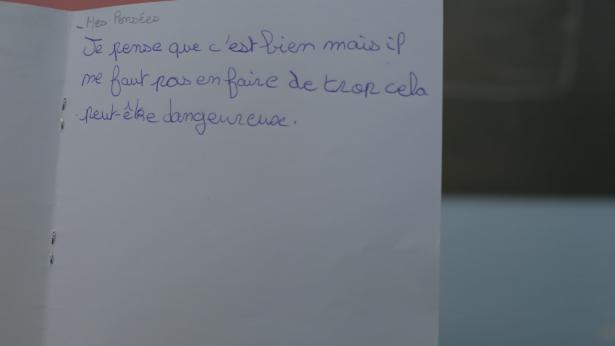 _Mes Pensées
Je pense que c'est bien mais il
ne faut pas en faire de trop cela
peut-être dangeureuse.